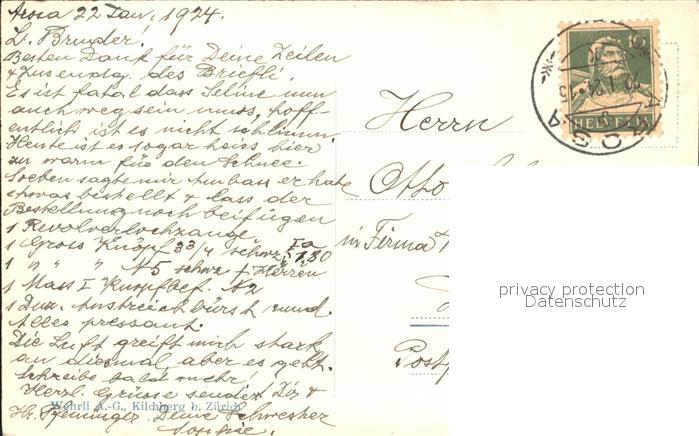 Arosa 22 Jan. 1924.
Lb. Bruuder!
Besten Dank für Deine Zeilen
& Zusendg. des Briefli.
Es ist fatal dass Seline nun
auch weg sein muss, hoff-
entlich ist es nicht schlimm.
Heute ist es sogar heiss hier
zu warm für den Schnee.
Soeben sagte mir Ambass er habe
etwas bestellt & lass der
Bestellung noch beifügen
1 Revolverlochzange
1 Gross Knöpf 33/4 schwz Ia 1,80
1 " " " N5 schwz f. Herren
1 Mass I Knopfbef. N2
1 Duz. Anstreichbürst rund.
Alles pressant.
Die Luft greift mich stark
an diesmal, aber es geht.
Schreibe bald mehr!
Herzl. Grüsse sendet Dir &
Hr. Pfenninger Deine Schwester
Sophie.
Wehrli A.-G., Kilchberg b. Zürich
Herrn
Otto
in Firma
Postf
10
HELVETIA
AROSA
privacy protection
Datenschutz